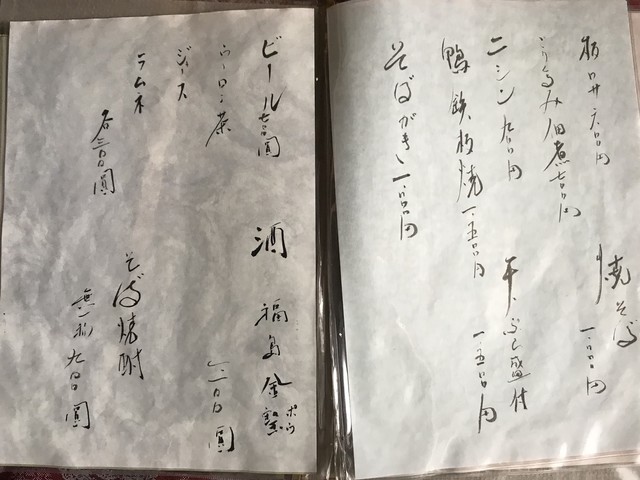 板わさ 六〇〇円
くるみ佃煮 七〇〇円
ニシン 九〇〇円
鴨鉄板焼 一、五〇〇円
そばがき 一、〇〇〇円
焼そば
一、〇〇〇円
干ぶし盛付
一、五〇〇円
ビール 七〇〇圓
ウーロン茶
ジュース
ラムネ
各三〇〇圓
酒
福島 金寳
圓
そば焼酎
九〇〇圓